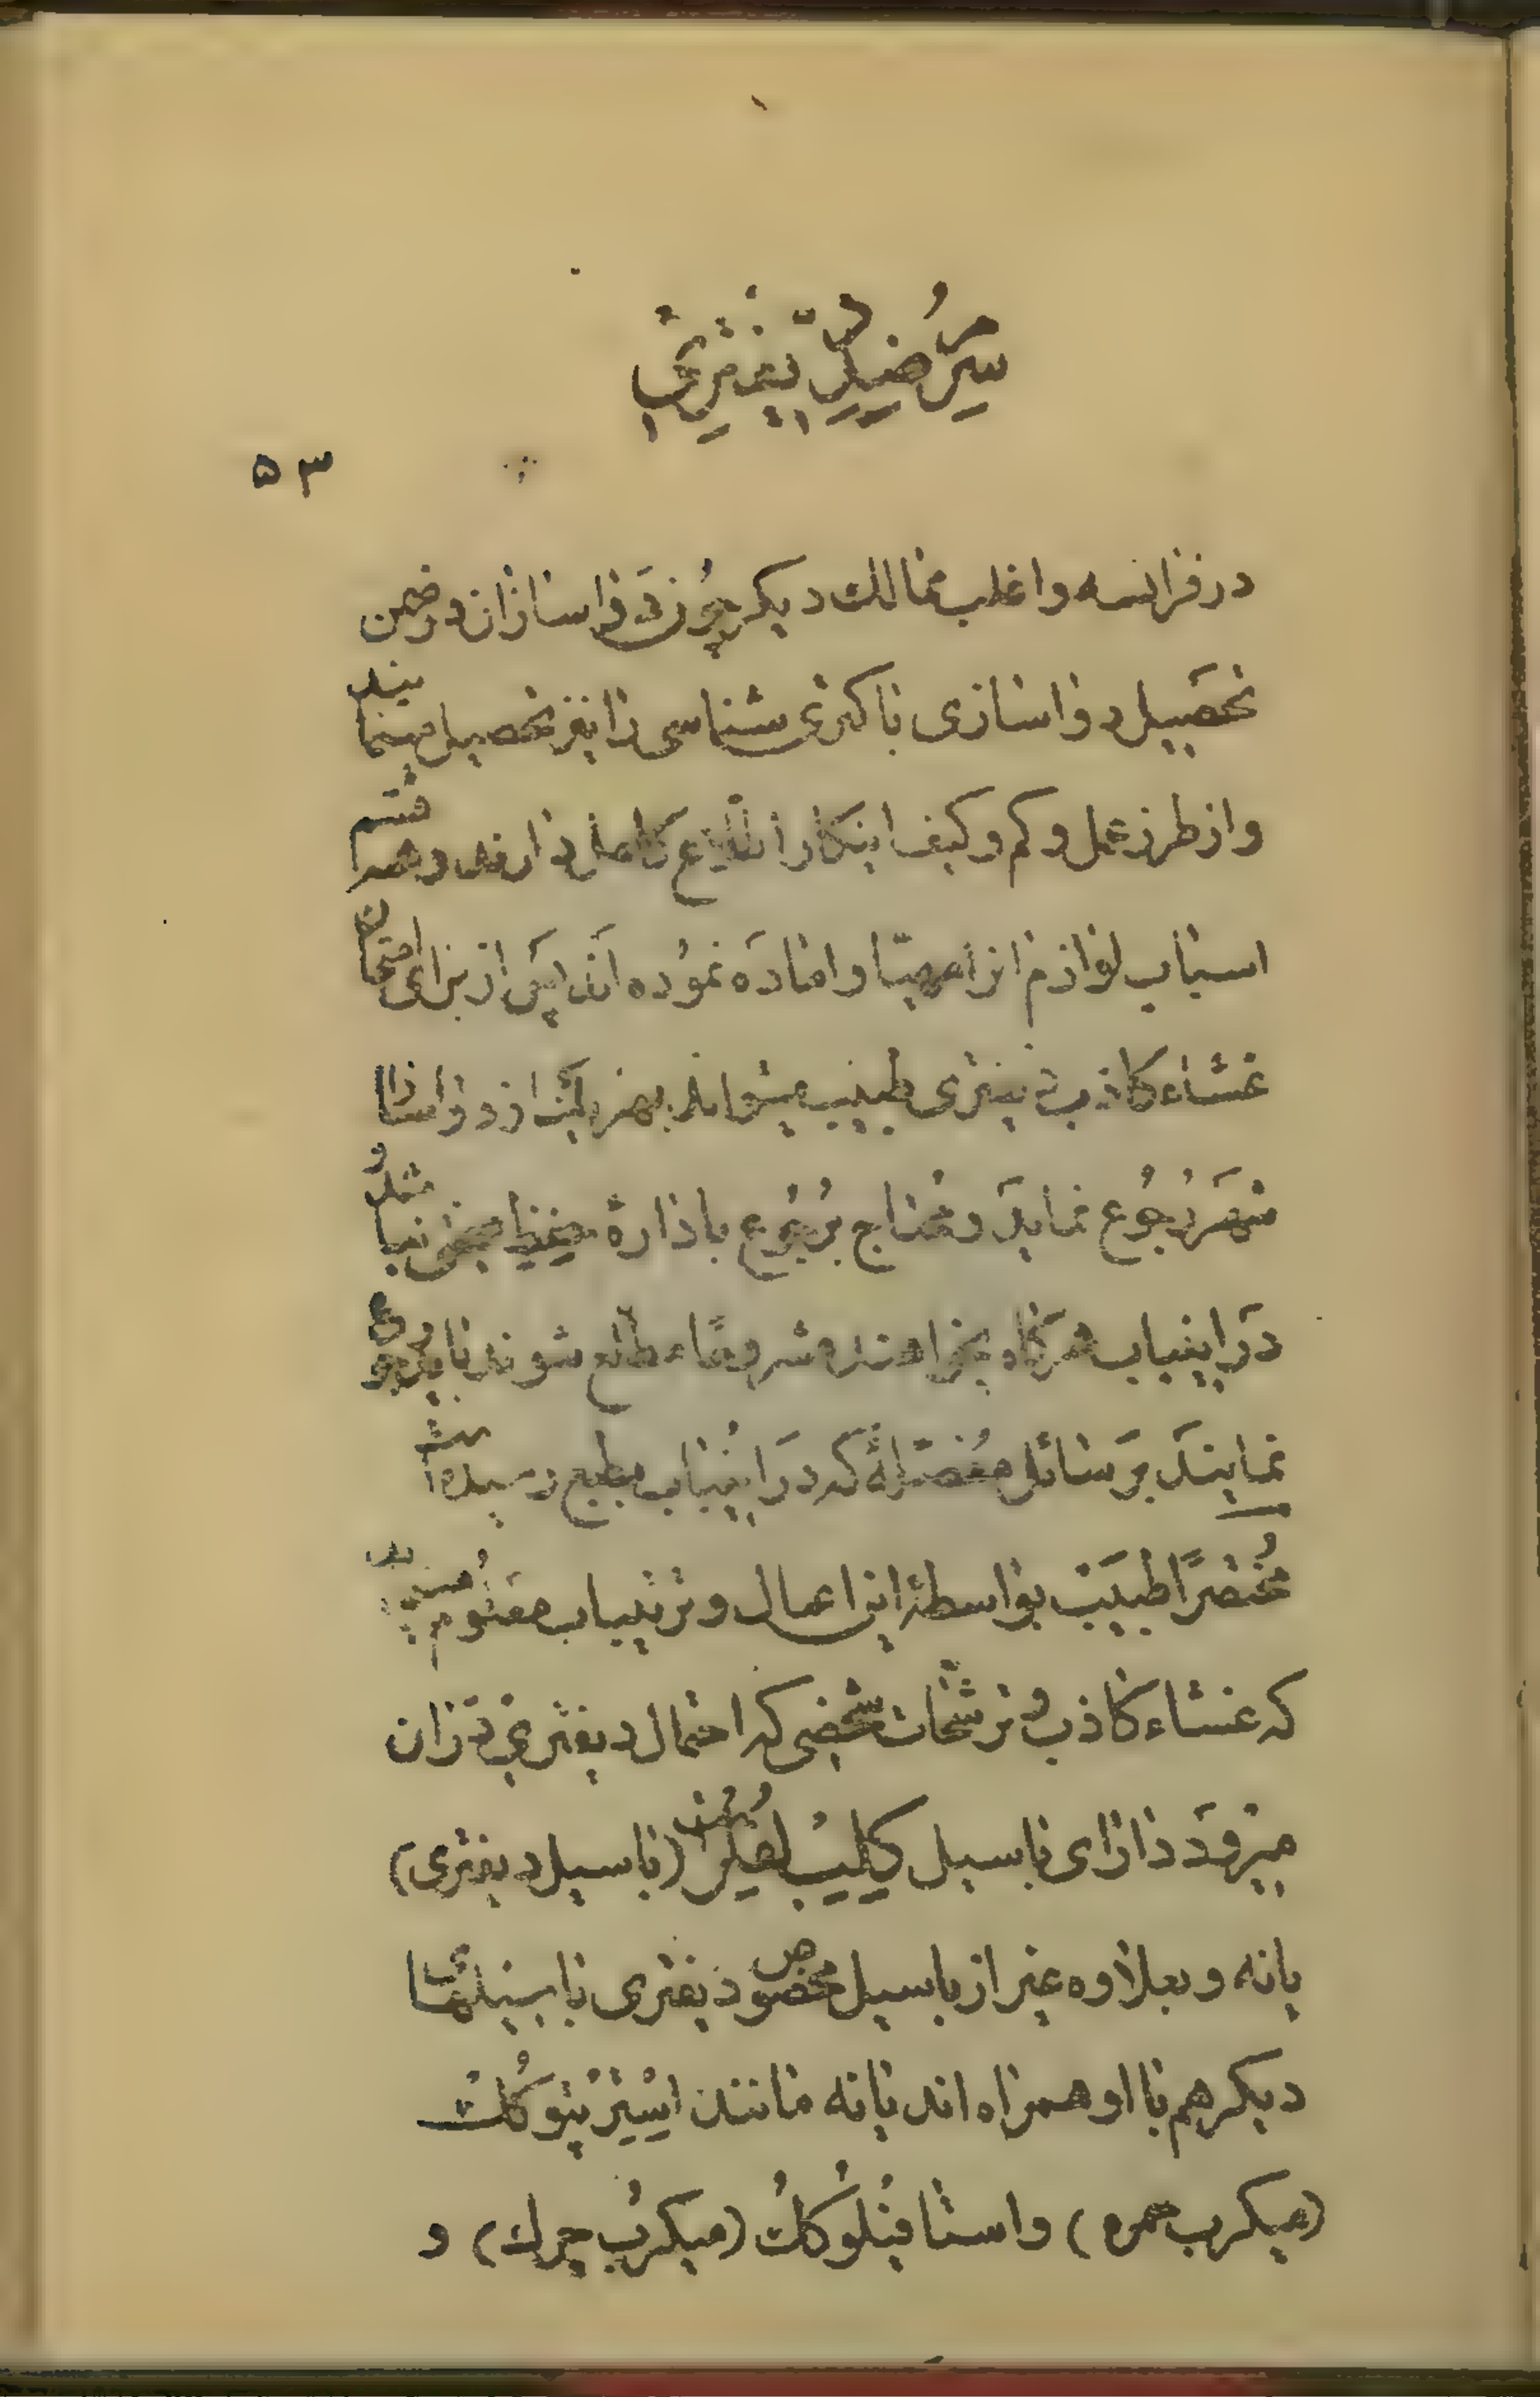 سِرُمْ ضِدِّ دیفتریٖ
۵۳
در فرانسه و اغلب ممالك دیکر چُون دَواسازان در ضمن
تحصیل دواسازی باکتری شناسی را نیز تحصیل مینمایند
و از طرز عمل و کم و کیف اینکار اطّلاع کامل دارند و همه قسم
اسباب لوازم انرا مهیّا و امادَه نمُوده اَند پَس از برای امتحان
غشاء کاذب دیفتری طبیب میتواند بهر یَك از دواسازان
شهر رُجُوع نمایدَ و مُحتاج برُجُوع باداره حفظ صحّی نباشد و
دَر اینباب هرکاه بخواهند مشروحًا مطّلع شوند باید رجوع
نمایندَ برَسائل مُفصّلۀ که دَر اینباب بطبع رسیده است
مُختصرًا طبیَب بواسطۀ این اعمال و ترتیبات معلُوم مینماید
که غشاء کاذب و ترشّحات شخصی که احتمال دیفتری در ان
میرودَ دارای باسیل کلِیبْ لُفلِرْ است (باسیل دیفتری)
یانه و بعلاوه غیر از باسیل مخصوص دیفتری باسیلهای
دیکر هم با او همراه اند یانه مانند اِسْتِرْپْتوکُكْ
(میکرب حمره) و استافیْلُوکُكْ (میکرُب چرك) و